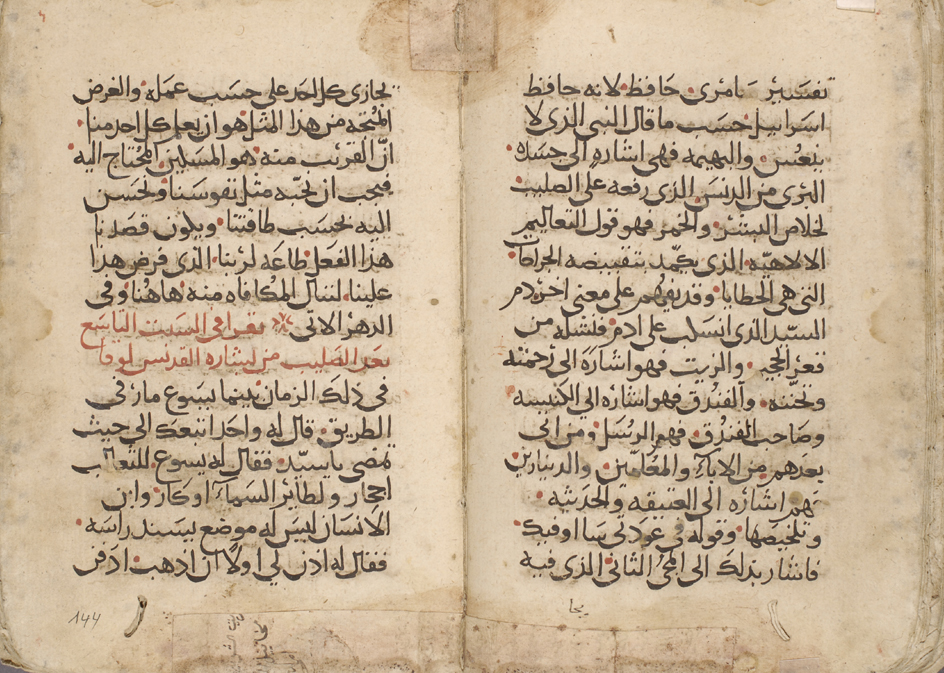 تفسير سامري حافظ لانه حافظ
اسراييل حسب ما قال النبي الذي لا
ينعس والبهيمه فهي اشاره الى جسده
البري من الدنس الذي رفعه على الصليب
لخلاص البشر والخمر فهو قول التعاليم
الالاهيه الذي يضمد بتقبيضه الجراحات
التي هي الخطايا وقد يفهم على معنى اخر دم
السيد الذي انسكب على ادم فنشله من
قعر الجحيم والزيت فهو اشاره الى رحمته
وتحننه والفندق فهو اشاره الى الكنيسه
وصاحب الفندق فهم الرسل ومن اتى
بعدهم من الابآء والمعلمين والدينارين
فهم اشاره الى العتيقه والحديثه
وتلخيصها وقوله في عودتي سااوفيك
فاشار بذلك الى المجي الثاني الذي فيه
يجا
يجازي كل احد على حسب عمله والغرض
المتجه من هذا المثل هو ان يعلم كل احد منا
ان القريب منه هو المسكين المحتاج اليه
فيجب ان نحبه مثل نفوسنا ونحسن
اليه بحسب طاقتنا ويكون قصدنا
هذا الفعل طاعه لربنا الذي فرض هذا
علينا لننال المكافاه منه هاهنا وفي
الدهر الاتي يقرا في السبت التاسع
بعد الصليب من بشاره القديس لوقا
في ذلك الزمان بينما يسوع مار في
الطريق قال له واحد اتبعك الى حيث
تمضي يا سيد فقال له يسوع للثعالب
احجار ولطاير السمآء اوكار وابن
الانسان ليس له موضع يسند راسه
فقال له اذن لي اولا ان اذهب ادفن
144